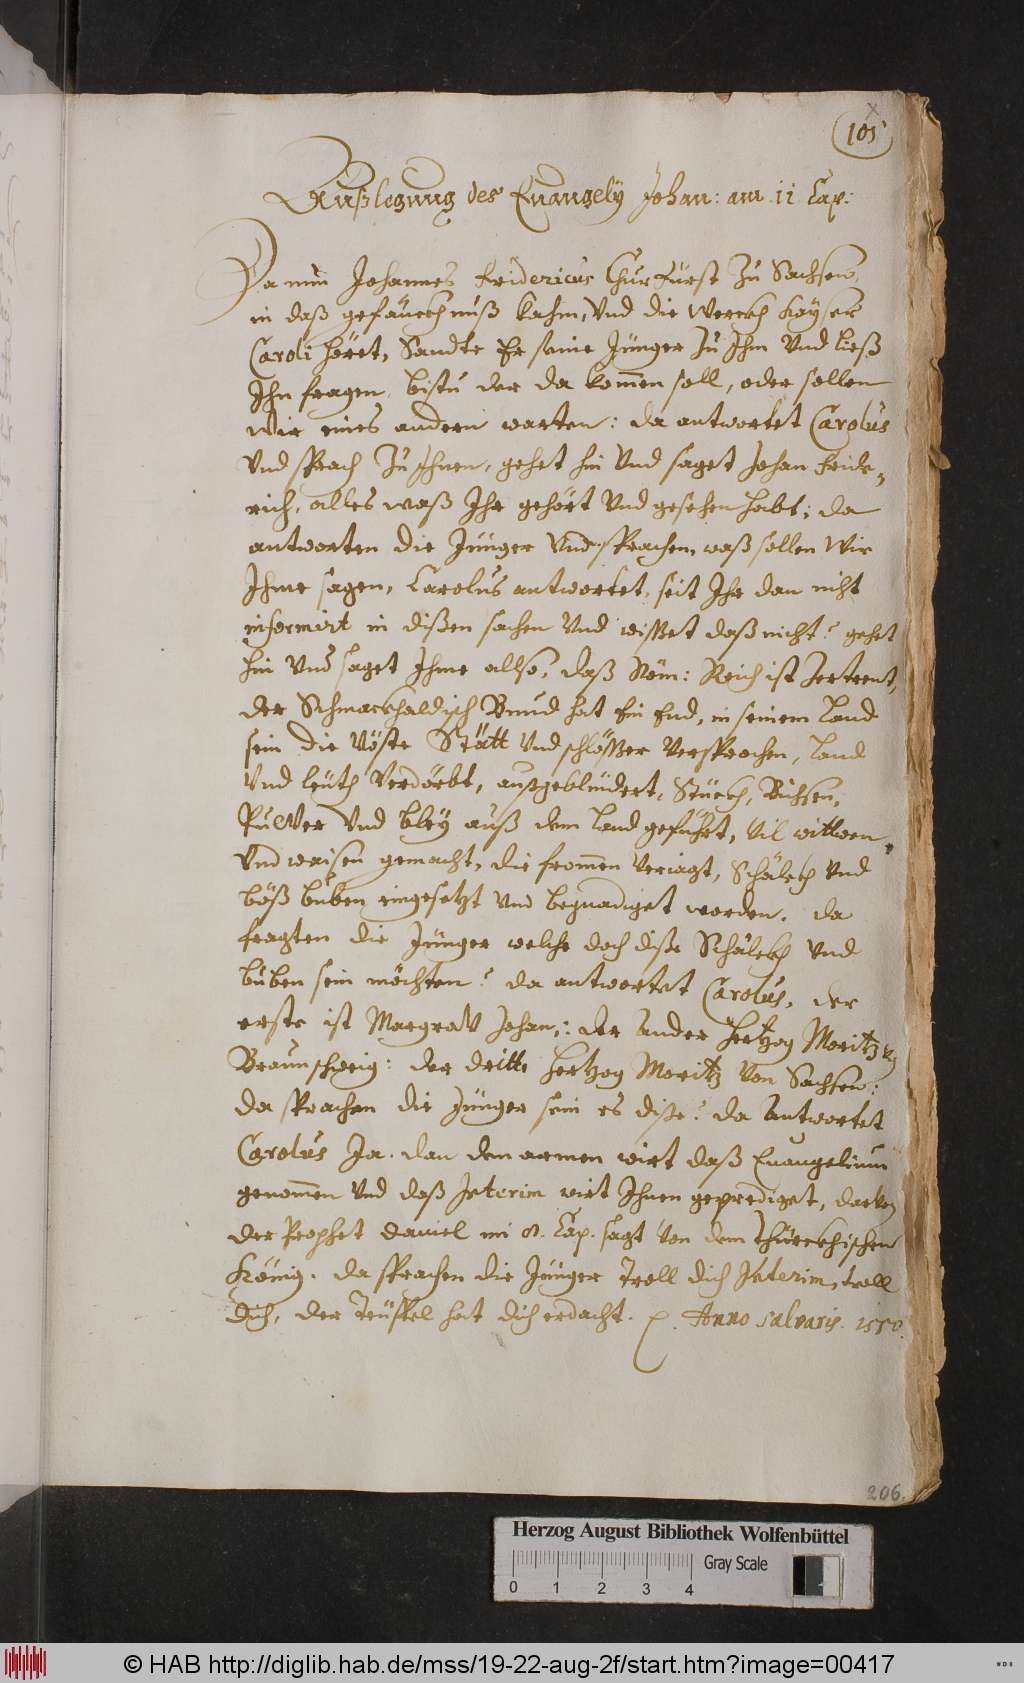 105
Außlegung des Euangelÿ Johan: am 11 Cap:
Da nun Johannes Fridericus Churfürst zu Sachsen
in daß gefänckhnuß kahm, Vnd die Werckh Kaÿser
Caroli höret, Sandte Er seine Jünger zu Ihm Vnd ließ
Ihn fragen, bistu der da kom̄en soll, oder sollen
Wir eines andern warten: da antwortet Carolus
Vnd sprach zu Ihnen, gehet hin Vnd saget Johan Fride„
rich, alles waß Ihr gehört Vnd gesehen habt; da
antworten die Jünger Vnd sprachen, waß sollen Wir
Ihme sagen, Carolus antwortet, seit Ihr dan nicht
informirt in dißen sachen Vnd wisset daß nicht? gehet
hin Vnd saget Ihme also, daß Röm: Reich ist Zertrent,
der Schmackhaldisch Bund hat Ein End, in seinem Land
sein die Vöste Stätt Vnd schlösser Versprochen, Land
Vnd Leüth Verdörbt, außgeblündert, Stückh, Bichsen,
Pulver Vnd Bleÿ auß dem Land geführt, Vil witwen,
Vnd waisen gemacht, die from̄en Veriagt, Schälckh Vnd
böß buben eingesetzt Vnd begnadiget worden. da
fragten die Jünger welche doch diße Schälckh Vnd
buben sein möchten? da antwortet Carolus, der
erste ist Margrav Johan,: der Ander Hertzog Moritz
Braunschweig: der dritte Hertzog Moritz Von Sachsen:
da sprachen die Jünger sein es diße? da Antwortet
Carolus Ja. dan den armen wirt daß Euangelium
genom̄en Vnd daß Interim wirt Ihnen geprediget, darVon
der Prophet Daniel im 8. Cap. sagt Von dem Thürckhischen
König. da sprachen die Jünger Troll dich Interim, troll
dich, der Teüffel hat dich erdacht. Anno salvaris. 1550.
206.
Herzog August Bibliothek Wolfenbüttel
0 1 2 3 4 Gray Scale
© HAB http://diglib.hab.de/mss/19-22-aug-2f/start.htm?image=00417